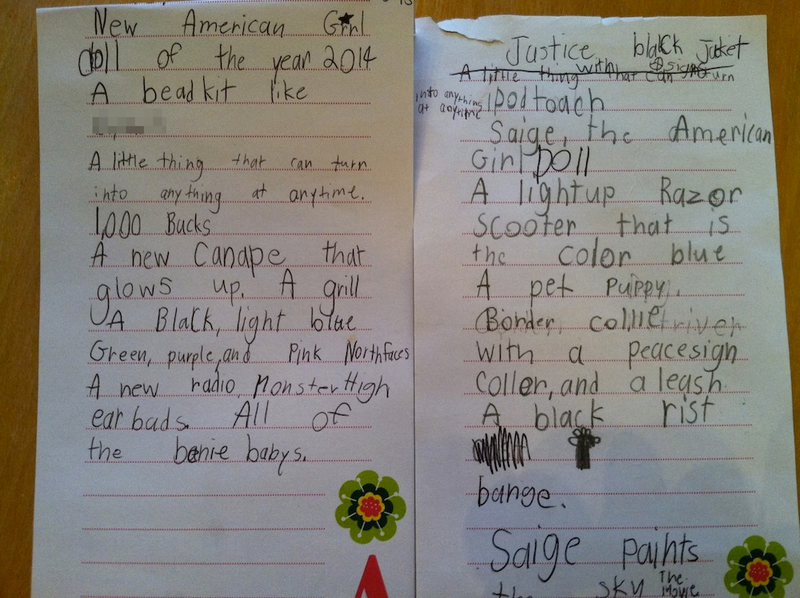 New American Girl
Doll of the year 2014
A bead kit like
A little thing that can turn
into anything at anytime.
1,000 Bucks
A new Canape that
glows up. A grill
A Black, light blue
Green, purple, and Pink Northfaces
A new radio, Monster High
ear buds. All of
the benie babys.
Justice black Jaket
A little thing with that can turn
into anything
at anytime
ipod toach
Saige, the American
Girl Doll
A lightup Razor
Scooter that is
the color blue
A pet puppy.
(Border collie
with a peacesign
Coller, and a leash
A black rist
bange.
Saige paints
the SKY The
Movie